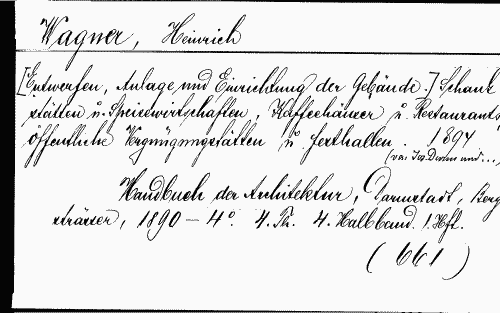 Wagner, Heinrich
[Entwerfen, Anlage und Einrichtung der Gebäude.] Schank
stätten u. Speisewirtschaften, Kaffeehäuser u. Restaurants,
öffentliche Vergnügungsstätten u. Festhallen. 1894
(von Jos. Durm und...)
Handbuch der Architektur, Darmstadt, Berg
strässer, 1890 – 4°. 4. Th. 4. Halbband. 1. Hft.
(661)